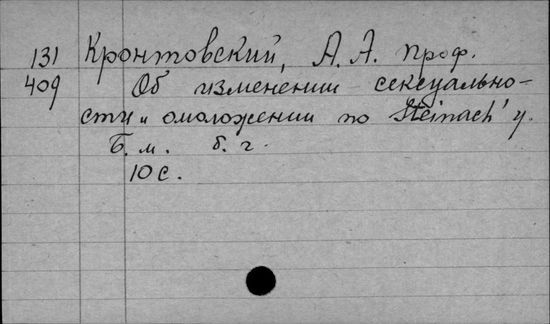 131 Кронтовский, А. А. проф.
409 Об изменении сексуально-
сти и омоложении по Steinach'у.
Б. м. б. г.
10 с.